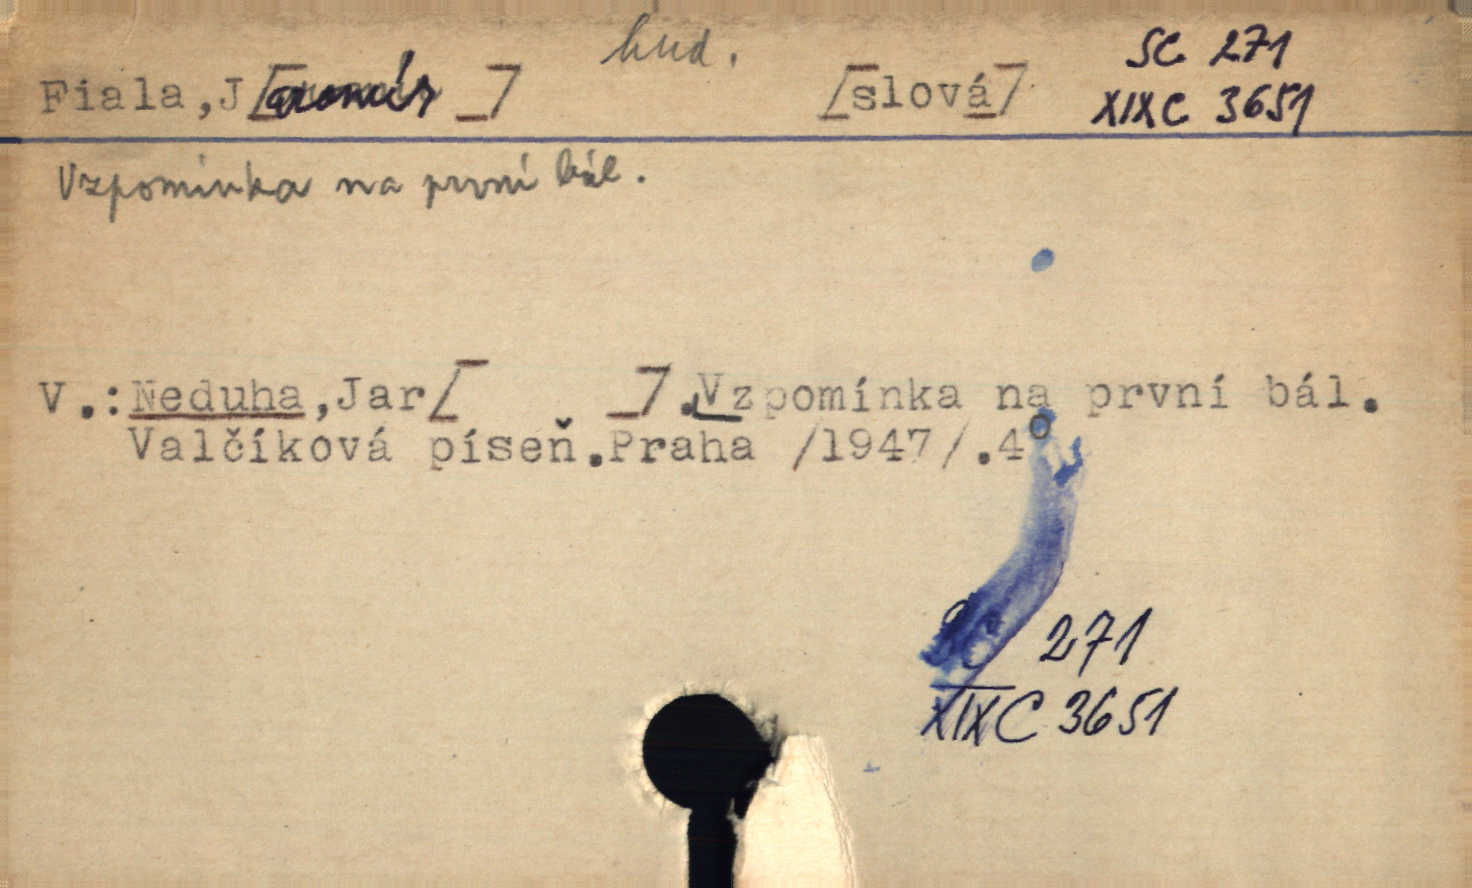 hud.
SC 271
Fiala,J[ ] [slová]
XIXC 3651
Vzpomínka na první bál.
V.:Neduha,Jar[ ].Vzpomínka na první bál.
Valčíková píseň.Praha /1947/.4°
SC 271
XIXC 3651